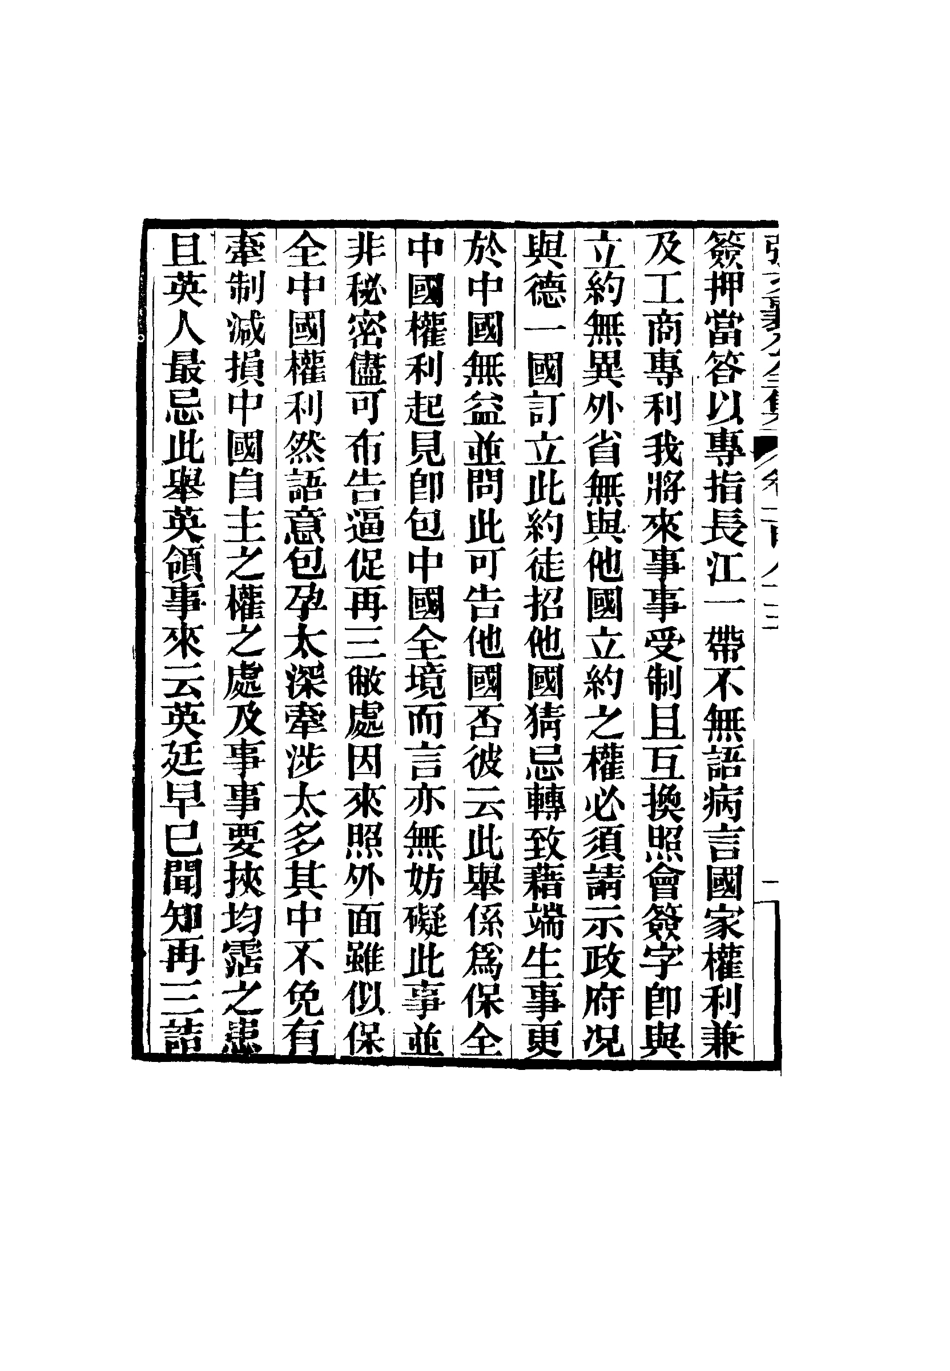 張文襄公全集 卷一百八十三 一
簽押當答以專指長江一帶不無語病言國家權利兼
及工商專利我將來事事受制且互換照會簽字卽與
立約無異外省無與他國立約之權必須請示政府况
與德一國訂立此約徒招他國猜忌轉致藉端生事更
於中國無益並問此可告他國否彼云此舉係爲保全
中國權利起見卽包中國全境而言亦無妨礙此事並
非秘密儘可布告逼促再三敝處因來照外面雖似保
全中國權利然語意包孕太深牽涉太多其中不免有
牽制減損中國自主之權之處及事事要挾均霑之患
且英人最忌此舉英領事來云英廷早已聞知再三詰